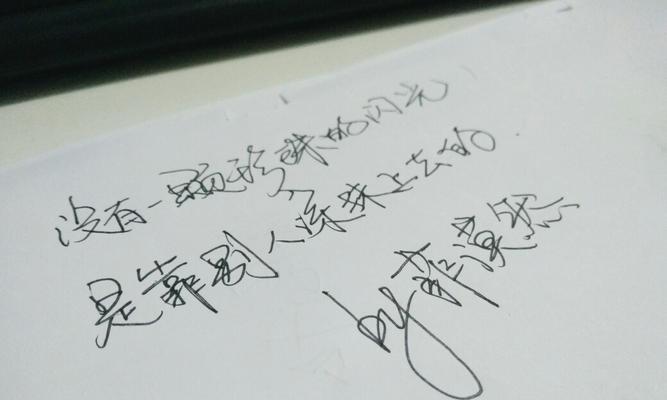 没有一颗珍珠的闪光
是靠别人涂抹上去的.
by 菲漠